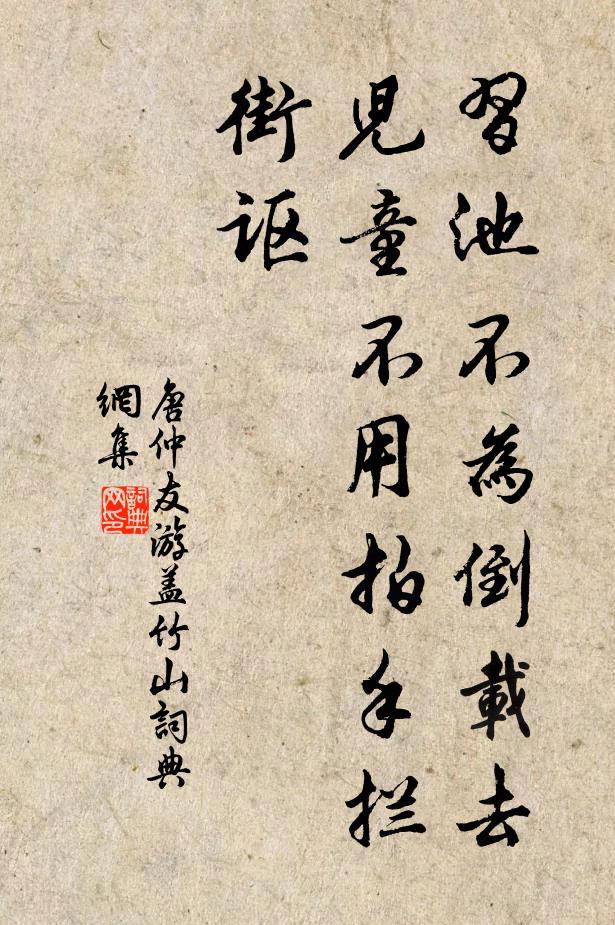 習池不為倒載去
児童不用拍手拦
街讴
唐仲友游盖竹山詞典
網集
詞典
网印